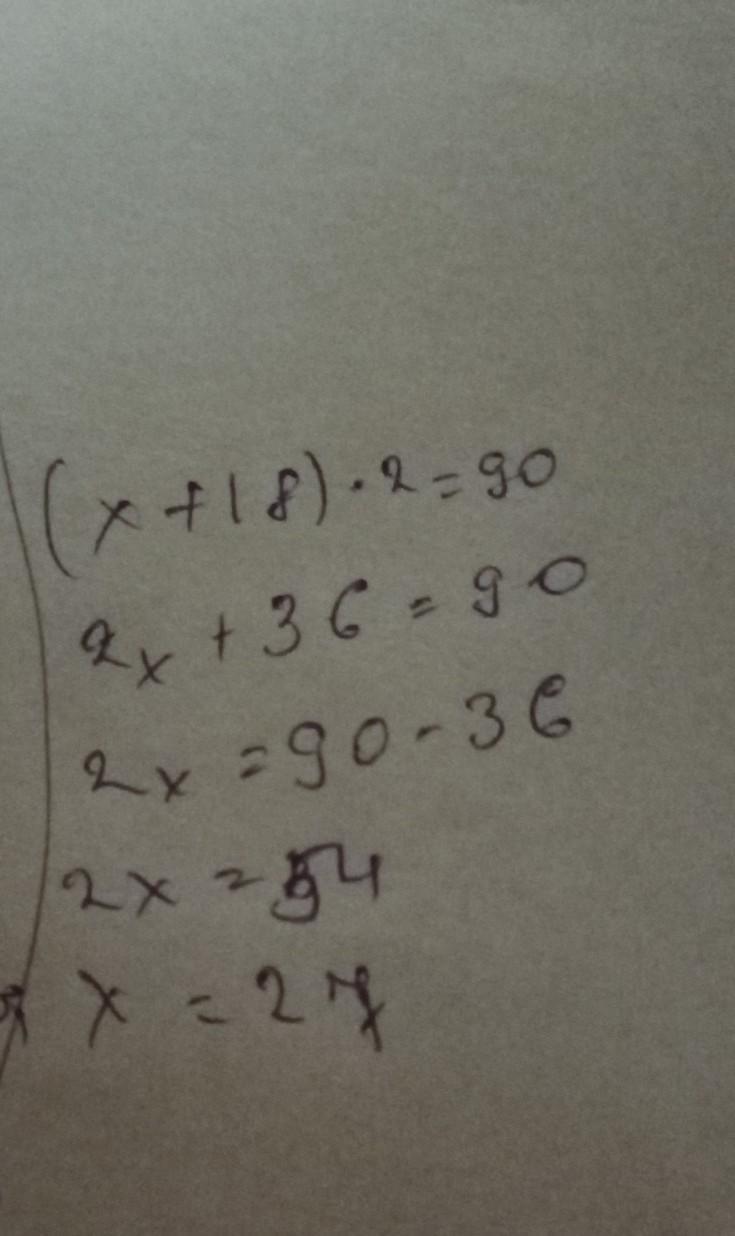 (x+18)·2=90
2x+36=90
2x=90-36
2x=54
x=27